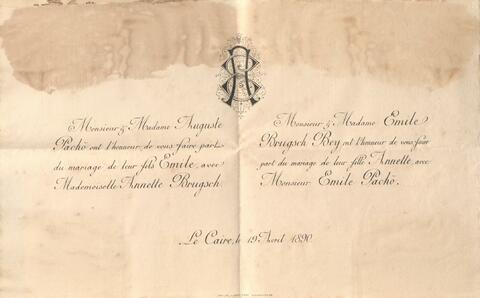 Monsieur & Madame Auguste
Pachò ont l'honneur de vous faire part
du mariage de leur fils Emile, avec
Mademoiselle Annette Brugsch.
Monsieur & Madame Emile
Brugsch Bey ont l'honneur de vous faire
part du mariage de leur fille Annette, avec
Monsieur Emile Pachò.
Le Caire, le 19 Avril 1890.